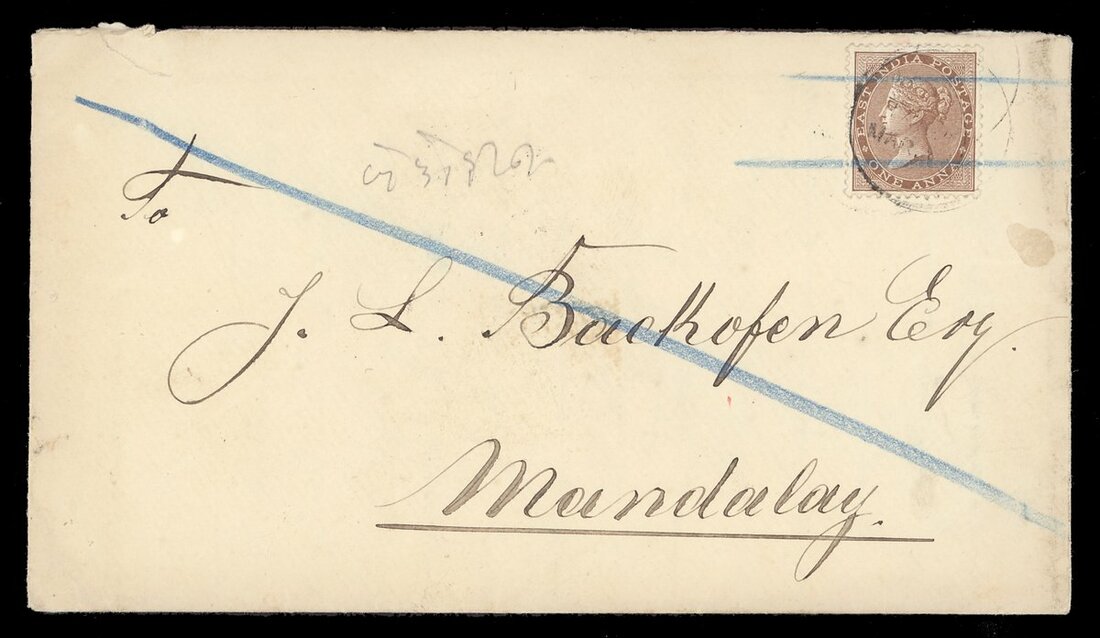 EAST INDIA POSTAGE
ONE ANNA
To
J. L. Backofen Esq.
Mandalay.